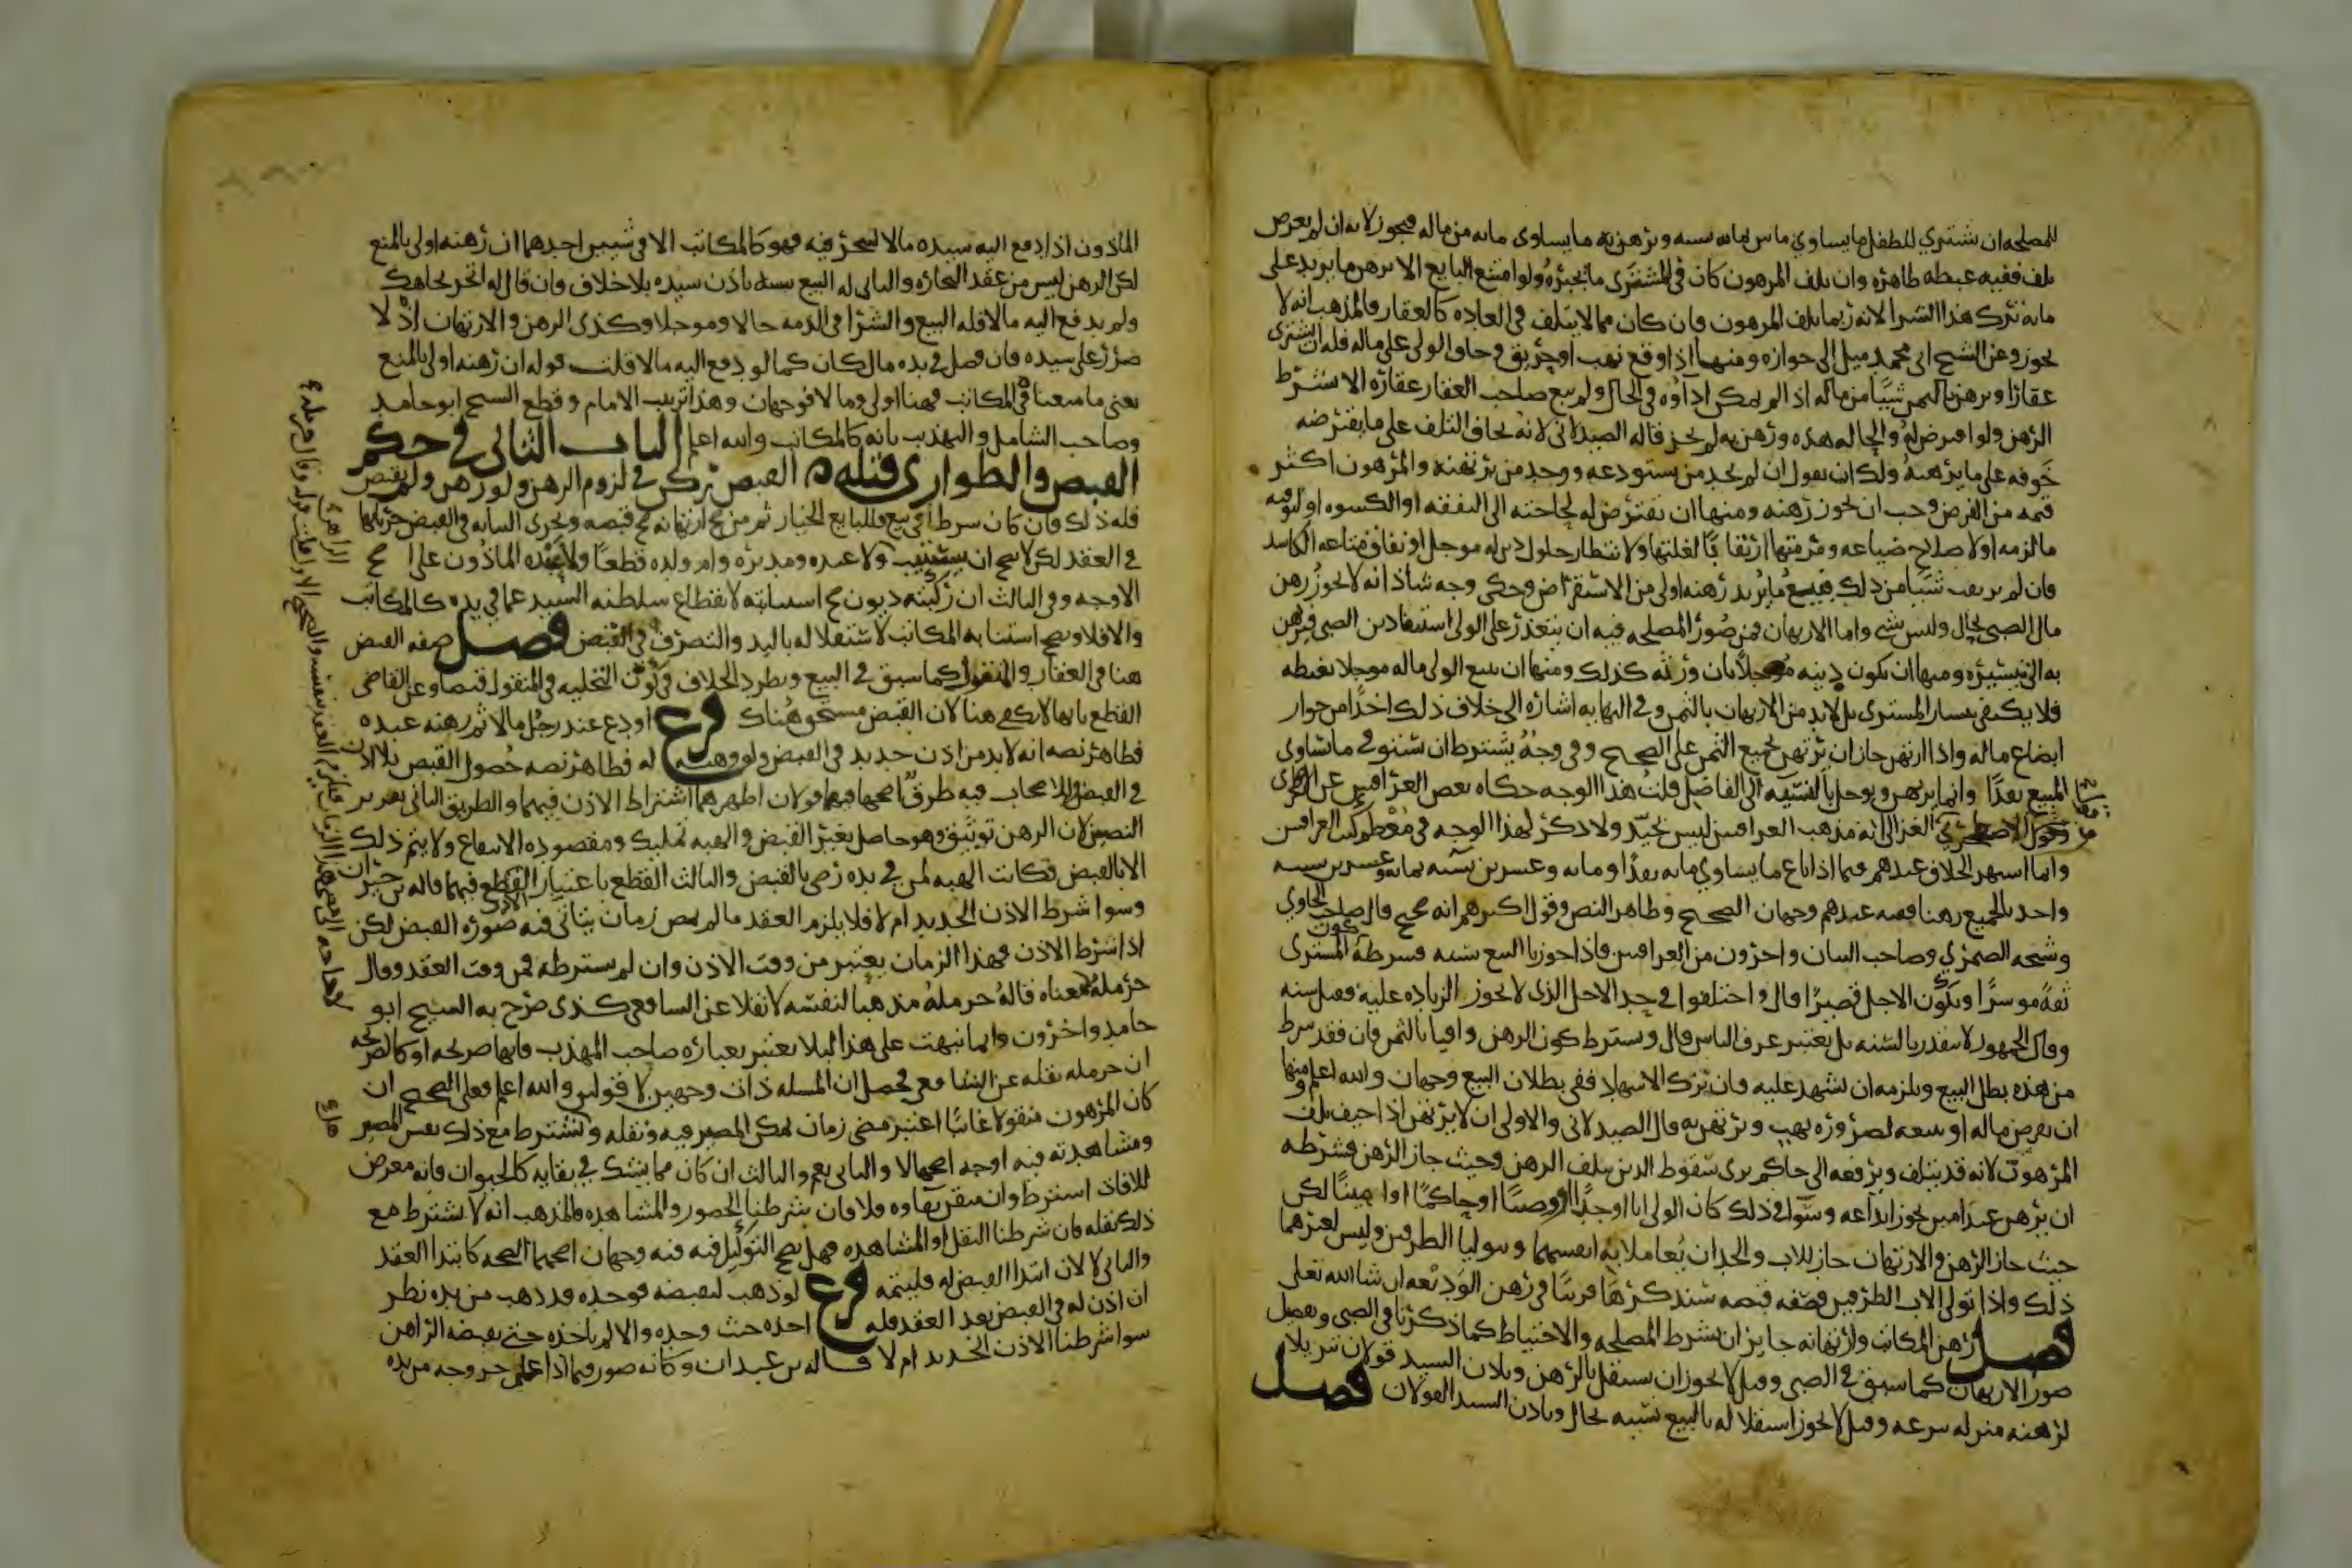 للمصلحه ان يشتري للطفل ما يساوي مايتين بمايه نسيه ويرهن به ما يساوي مايه من ماله فيجوز لانه ان لم يعرض
تلف ففيه غبطه ظاهره وان تلف المرهون كان في المشترى ما يجبره ولو امتنع البايع الا برهن ما يزيد على
مايه ترك هذا الشرا لانه ربما يتلف المرهون فان كان مما لا يتلف في العاده كالعقار فالمذهب انه لا
يجوز وعن الشيخ ابي محمد ميل الى جوازه ومنها اذا وقع نهب او حريق وخاف الولي على ماله فله ان يشتري
عقارا ويرهن بالثمن شيئا من ماله اذا لم يمكن اداؤه في الحال ولم يبع صاحب العقار عقاره الا بشرط
الرهن ولو اقترض له والحاله هذه ورهن به لم يجز قاله الصيدلاني لانه يخاف التلف على ما يقترضه
خوفه على ما يرهنه ولك ان تقول ان لم يجد من يستودعه ووجد من يرتهنه والمرهون اكثر
قيمه من القرض وجب ان يجوز رهنه ومنها ان يقترض له لحاجته الى النفقه او الكسوه او لتوفيه
ما لزمه او لاصلاح ضياعه ومرمتها ارتقابا لغلتها ولانتظار حلول دين له موجل او نفاق متاعه الكاسد
فان لم يرتقب شيئا من ذلك فبيع ما يريد رهنه اولى من الاستقراض وحكى وجه شاذ انه لا يجوز رهن
مال الصبي بحال وليس بشي واما الارتهان فمن صور المصلحه فيه ان يتعذر على الولي استيفا دين الصبي فيرتهن
به الى تيسيره ومنها ان يكون دينه موجلا بان ورثه كذلك ومنها ان يبيع الولي ماله موجلا بغبطه
فلا يكتفى بيسار المشتري بل لا بد من الارتهان بالثمن وفي النهايه اشاره الى خلاف ذلك اخذا من جواز
ابضاع ماله واذا ارتهن جاز ان يرتهن بجميع الثمن على الصحيح وفي وجه يشترط ان يستوفي ما يساوي
المبيع نقدا وانما يرتهن ويوجل بالنسبه الى الفاضل قلت هذا الوجه حكاه بعض العراقيين عن الاصطخري
الغزالي انه مذهب العراقيين ليس بجيد ولا ذكر لهذا الوجه في معظم كتب العراقيين
وانما اشتهر الخلاف عندهم فيما اذا باع ما يساوي مايه نقدا ومايه وعشرين نسيه بمايه وعشرين نسيه
واخذ بالجميع رهنا ففيه عندهم وجهان الصحيح وظاهر النص وقول اكثرهم انه صحيح قال صاحب الحاوي
وشيخه الصيمري وصاحب البيان واخرون من العراقيين فاذا جوزنا البيع نسيه فشرطه كون المشتري
ثقه موسرا ويكون الاجل قصيرا قال واختلفوا في حد الاجل الذي لا يجوز الزياده عليه فقيل سنه
وقال الجمهور لا يتقدر بالسنه بل يعتبر عرف الناس قال ويشترط كون الرهن وافيا بالثمن فان فقد شرط
من هذه بطل البيع ويلزمه ان يشهد عليه فان ترك الاشهاد ففي بطلان البيع وجهان والله اعلم ومنها
ان يقرض ماله او يبيعه لضروره نهب ويرتهن به قال الصيدلاني والاولى ان لا يرتهن اذا خيف تلف
المرهون لانه قد يتلف ويرفعه الى حاكم يرى سقوط الدين بتلف الرهن وحيث جاز الرهن فشرطه
ان يرهن عند امين يجوز ايداعه وسوا في ذلك كان الولي ابا او جدا او وصيا او حاكما او امينا لكن
حيث جاز الرهن والارتهان جاز للاب والجد ان يعاملا به انفسهما ويتوليا الطرفين وليس لغيرهما
ذلك واذا تولى الاب الطرفين فصفه قبضه سنذكرها قريبا في رهن الوديعه ان شا الله تعالى
فصل رهن المكاتب وارتهانه جايزان بشرط المصلحه والاحتياط كما ذكرنا في الصبي وتفصيل
صور الارتهان كما سبق في الصبي وقيل لا يجوز ان يستقل بالرهن وباذن السيد قولان تنزيلا
لرهنه منزله تبرعه وقيل لا يجوز استقلاله بالبيع نسيه بحال وباذن السيد القولان فصل
الماذون اذا دفع اليه سيده مالا ليتجر فيه فهو كالمكاتب الا في شيين احدهما ان رهنه اولى بالمنع
لكن الرهن ليس من عقد التجاره والثاني له البيع نسيه باذن سيده بلا خلاف وان قال له اتجر بجاهك
ولم يدفع اليه مالا فله البيع والشرا في الذمه حالا وموجلا وكذى الرهن والارتهان اذ لا
ضرر على سيده فان فضل في يده مال كان كما لو دفع اليه مالا قلت قوله ان رهنه اولى بالمنع
يعني ما منعناه في المكاتب فهنا اولى وما لا فوجهان وهذا ترتيب الامام وقطع الشيخ ابو حامد
وصاحب الشامل والتهذيب بانه كالمكاتب والله اعلم الباب الثاني في حكم
القبض والطواري قبله القبض ركن في لزوم الرهن ولو رهن ولم يقبض
فله ذلك وان كان شرط في بيع فللبايع الخيار ثم من صح ارتهانه صح قبضه وتجري النيابه في القبض جريانها
في العقد لكن لا يصح ان يستنيب ولا عبده ومدبره وام ولده قطعا ولا عبده الماذون على اصح
الاوجه وفي الثالث ان ركبته ديون صح استنابته لانقطاع سلطنه السيد عما في يده كالمكاتب
والا فلا ويصح استنابه المكاتب لاستقلاله باليد والتصرف في القبض فصل صفه القبض
هنا في العقار والمنقول كما سبق في البيع ويطرد الخلاف في كون التخليه في المنقول قبضا وعن القاضي
القطع بانها لا تكفي هنا لان القبض مستحق هناك فرع اودع عند رجل مالا ثم رهنه عنده
فظاهر نصه انه لا بد من اذن جديد في القبض ولو وهبه له فظاهر نصه حصول القبض بلا اذن
في القبض وللاصحاب فيه طرق اصحها فيهما قولان اظهرهما اشتراط الاذن فيهما والطريق الثاني تقرير
النصين لان الرهن توثيق وهو حاصل بغير القبض والهبه تمليك ومقصوده الانتفاع ولا يتم ذلك
الا بالقبض فكانت الهبه لمن في يده رضى بالقبض والثالث القطع باعتبار الاذن فيهما قاله بن خيران
وسوا شرط الاذن الجديد ام لا فلا يلزم العقد ما لم يمض زمان يتاتى فيه صوره القبض لكن
اذا شرط الاذن فهذا الزمان يعتبر من وقت الاذن وان لم يشترطه فمن وقت العقد وقال
حرمله معناه قاله حرمله مذهبا لنفسه لا نقلا عن الشافعي كذى صرح به الشيخ ابو
حامد واخرون وانما نبهت على هذا ليلا يغتر بعباره صاحب المهذب فانها صريحه او كالصريحه
ان حرمله نقله عن الشافعي فحصل ان المسله ذات وجهين لا قولين والله اعلم فعلى الصحيح ان
كان المرهون منقولا غايبا اعتبر مضي زمان يمكن المصير فيه ونقله وهل يشترط مع ذلك نفس المصير
ومشاهدته فيه اوجه اصحها لا والثاني نعم والثالث ان كان مما يشك في بقايه كالحيوان فانه معرض
للافات اشترط وان تيقن بقاوه فلا فان شرطنا الحضور والمشاهده فالمذهب انه لا يشترط مع
ذلك نقله فان شرطنا النقل او المشاهده فهل يصح التوكيل فيه فيه وجهان اصحهما الصحه كابتدا العقد
والثاني لا لان ابتدا القبض له فليتمه فرع لو ذهب ليقبضه فوجده قد ذهب من يده نظر
ان اذن له في القبض بعد العقد فله اخذه حيث وجده والا لم ياخذه حتى يقبضه الراهن
سوا شرطنا الاذن الجديد ام لا قاله بن عبدان وكانه صور فيما اذا علم خروجه من يده